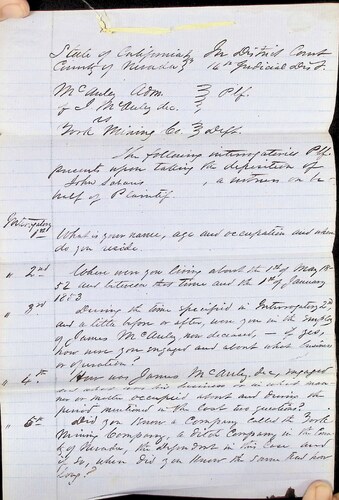 State of California } In District Court
County of Nevada } 14th Judicial Dist.
McAuley Adm. } Plf.
of J. McAuley dec. }
vs
York Mining Co. } Deft.
The following interrogatories Plf.
presents upon taking the deposition of
John , a witness on be
half of Plaintif.
Interrogatory
1st What is your name, age and occupation and where
do you reside
" 2nd Where were you living about the 1st of May 18-
52 and between this time and the 1st of January
1853
" 3rd During the time specified in Interrogatory 2nd
and a little before or after, were you in the employ
of James McAuley now deceased, – if yes,
how were you engaged and about what business
or operation?
" 4th How was James McAuley dec, engaged
and about his business or in what man-
ner or matter occupied about and during the
period mentioned in the last two questions?
" 5th Did you Know a Company called the York
Mining Company, a Ditch Company in the Coun
ty of Nevada, the Defendant in this case and
if so, when did you Know the same and how
long?